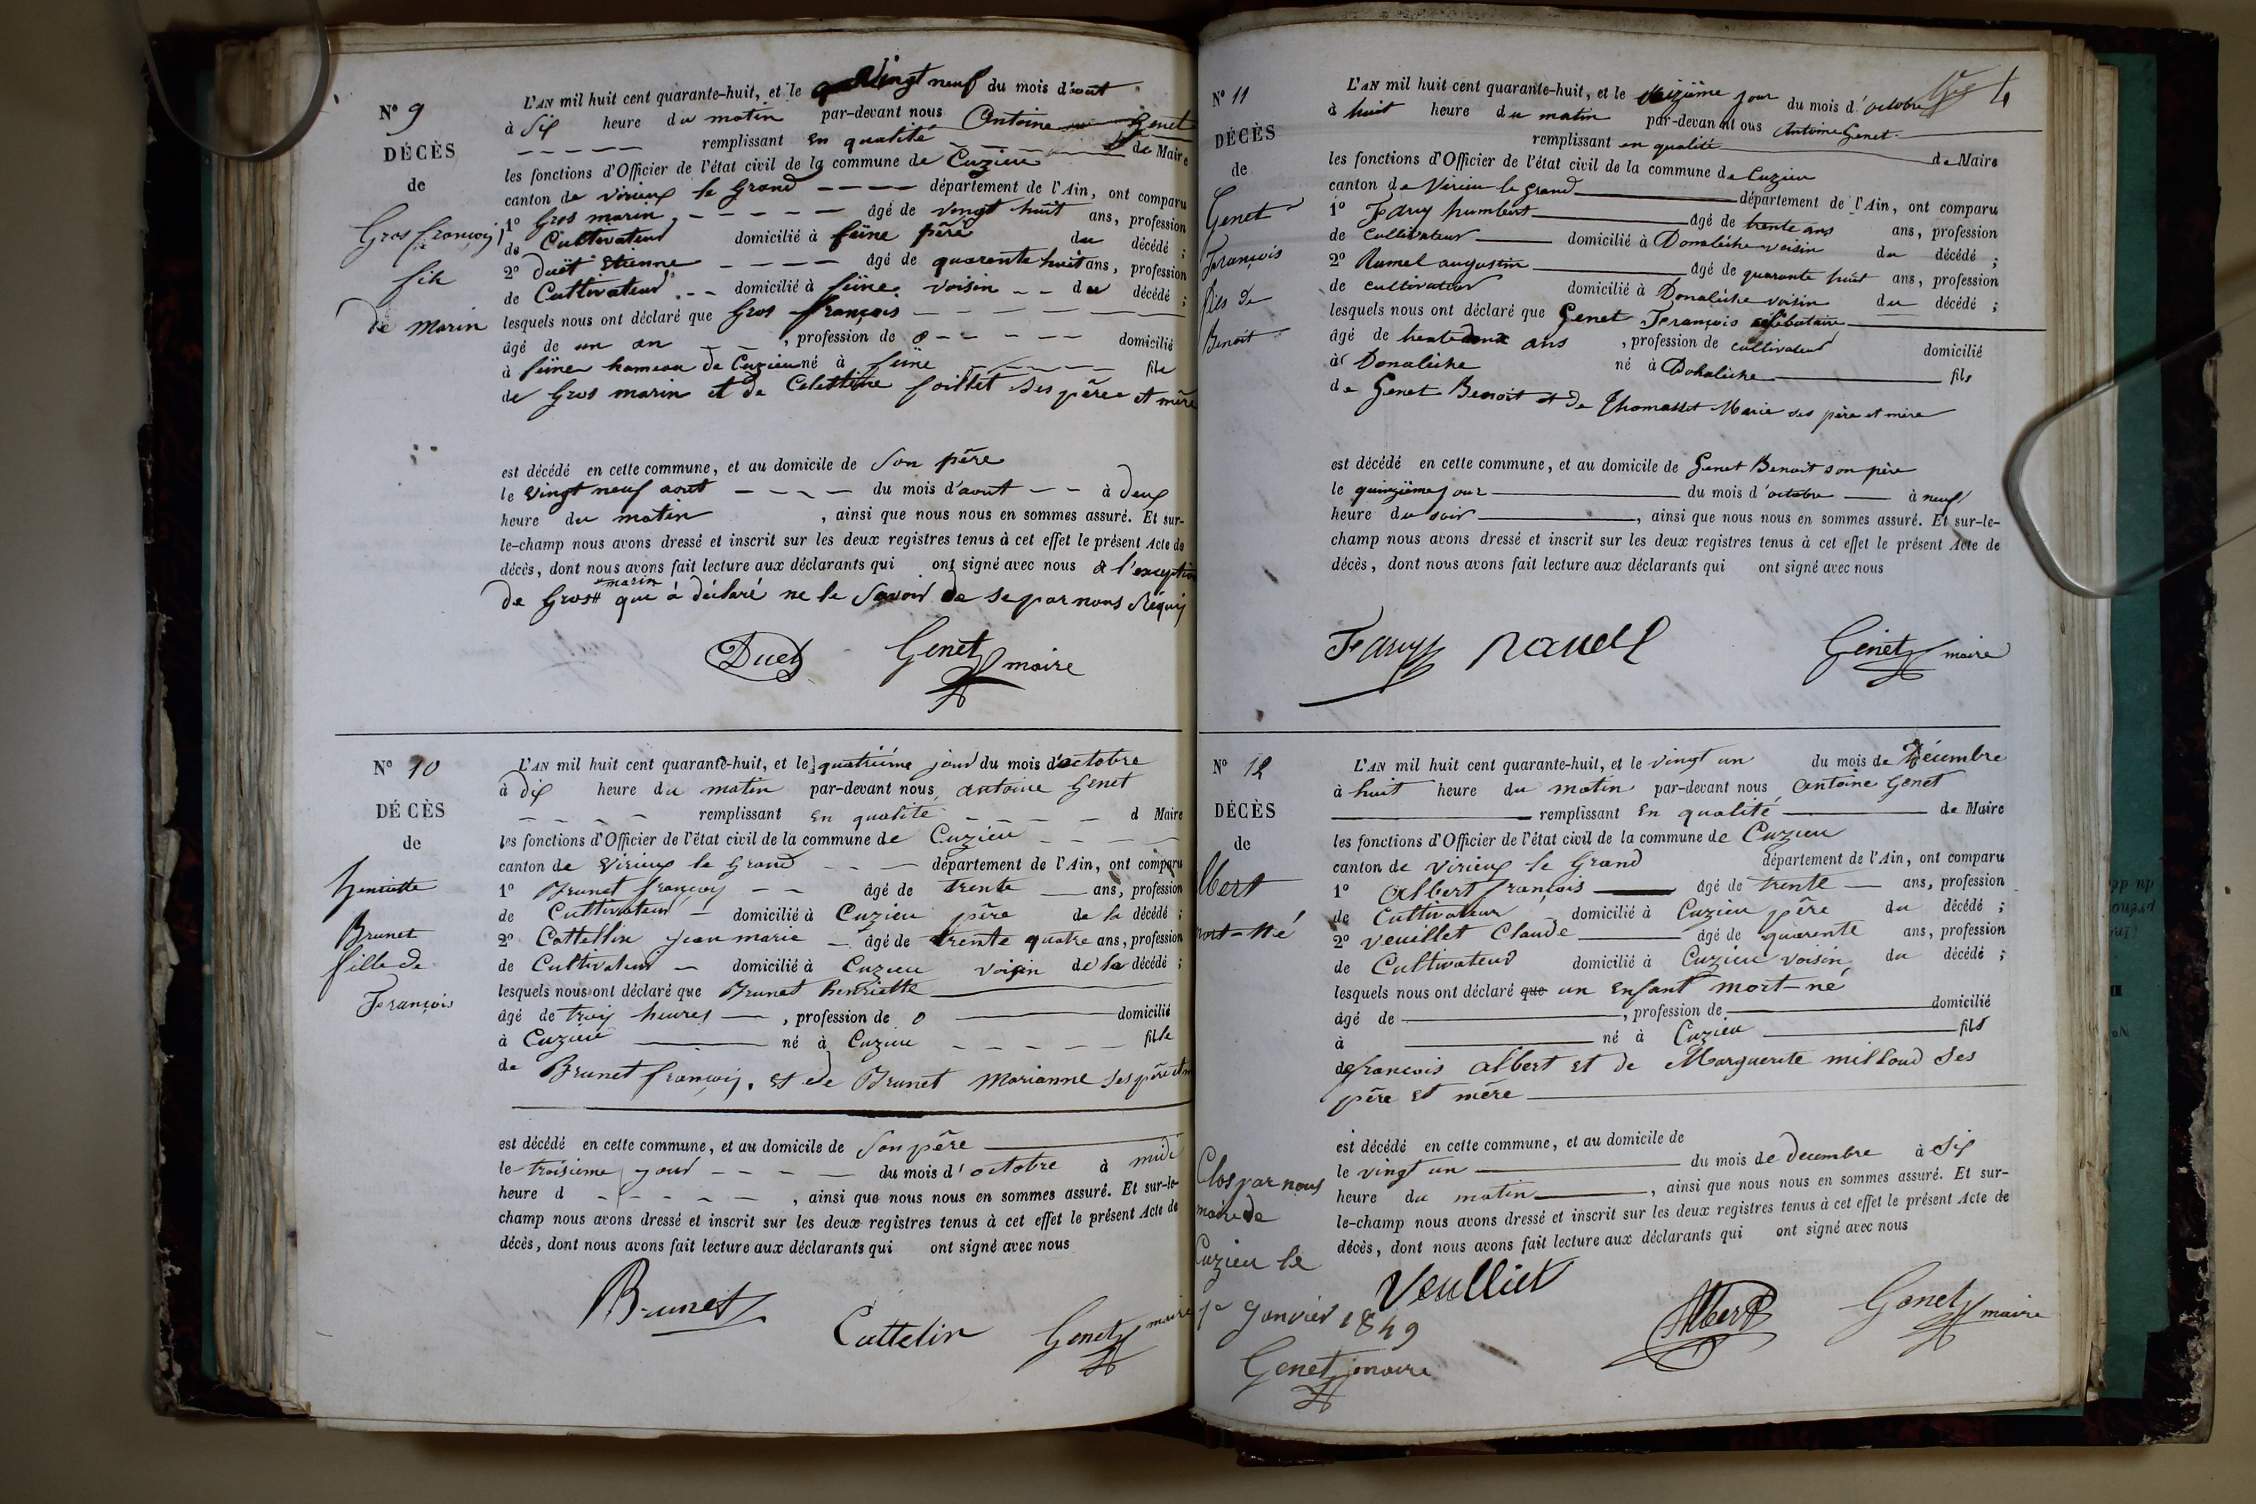 N° 9
DÉCÈS
de
Gros françois
fils
de marin
L'AN mil huit cent quarante-huit, et le Vingt neuf du mois d'aout
à Six heure du matin par-devant nous Antoine Genet
remplissant en qualité de Maire
les fonctions d'Officier de l'état civil de la commune de Cuzieu
canton de virieux le Grand département de l'Ain, ont comparu
1° Gros marin âgé de vingt huit ans, profession
de Cultivateur domicilié à père du décédé ;
2° duët Etienne âgé de quarente huit ans, profession
de Cultivateur domicilié à voisin du décédé ;
lesquels nous ont déclaré que Gros françois
âgé de un an , profession de 0 domicilié
à hameau de Cuzieu né à fils
de Gros marin et de Celestine ses père et mère
est décédé en cette commune, et au domicile de Son père
le vingt neuf aout du mois d'aout à deux
heure du matin , ainsi que nous nous en sommes assuré. Et sur-
le-champ nous avons dressé et inscrit sur les deux registres tenus à cet effet le présent Acte de
décès, dont nous avons fait lecture aux déclarants qui ont signé avec nous à l'exception
marin
de Gros que à déclaré ne le Savoir de se par nous Réquis
Duet Genet maire
N° 10
DÉCÈS
de
henriette
Brunet
fille de
François
L'AN mil huit cent quarante-huit, et le quatrième jour du mois d'octobre
à dix heure du matin par-devant nous antoine Genet
remplissant en qualité d Maire
les fonctions d'Officier de l'état civil de la commune de Cuzieu
canton de Virieux le Grand département de l'Ain, ont comparu
1° Brunet françois âgé de trente ans, profession
de Cultivateur domicilié à Cuzieu père de la décédé ;
2° Cattellin jean marie âgé de trente quatre ans, profession
de Cultivateur domicilié à Cuzieu voisin de la décédé ;
lesquels nous ont déclaré que Brunet henriette
âgé de trois heures , profession de 0 domicilié
à Cuzieu né à Cuzieu fille
de Brunet françois, et de Brunet Marianne ses père et m
est décédé en cette commune, et au domicile de Son père
le troisieme jour du mois d'octobre à midi
heure d , ainsi que nous nous en sommes assuré. Et sur-le-
champ nous avons dressé et inscrit sur les deux registres tenus à cet effet le présent Acte de
décès, dont nous avons fait lecture aux déclarants qui ont signé avec nous
Brunet Cattelin Genet maire
4
N° 11
DÉCÈS
de
Genet
François
fils de
Benoit
L'AN mil huit cent quarante-huit, et le seizième jour du mois d'octobre
à huit heure du matin par-devant nous Antoine Genet
remplissant en qualité de Maire
les fonctions d'Officier de l'état civil de la commune de Cuzieu
canton de Virieu le grand département de l'Ain, ont comparu
1° Favry humbert âgé de trente ans ans, profession
de cultivateur domicilié à Donalèche voisin du décédé ;
2° Ramel augustin âgé de quarante huit ans, profession
de cultivateur domicilié à Donalèche voisin du décédé ;
lesquels nous ont déclaré que Genet François célibataire
âgé de trente deux ans , profession de cultivateur domicilié
à Donalèche né à Donalèche fils
de Genet Benoit et de Thomasset Marie ses père et mère
est décédé en cette commune, et au domicile de Genet Benoit son père
le quinzième jour du mois d'octobre à neuf
heure du soir , ainsi que nous nous en sommes assuré. Et sur-le-
champ nous avons dressé et inscrit sur les deux registres tenus à cet effet le présent Acte de
décès, dont nous avons fait lecture aux déclarants qui ont signé avec nous
Genet maire
N° 12
DÉCÈS
de
lbert
mort-né
L'AN mil huit cent quarante-huit, et le vingt un du mois de Décembre
à huit heure du matin par-devant nous Antoine Genet
remplissant en qualité de Maire
les fonctions d'Officier de l'état civil de la commune de Cuzieu
canton de virieux le Grand département de l'Ain, ont comparu
1° Albert françois âgé de trente ans, profession
de Cultivateur domicilié à Cuzieu père du décédé ;
2° Veuillet Claude âgé de quarente ans, profession
de Cultivateur domicilié à Cuzieu voisin du décédé ;
lesquels nous ont déclaré que un enfant mort-né
âgé de , profession de domicilié
à né à Cuzieu fils
de francois albert et de Marguerite milloud Ses
père et mère
est décédé en cette commune, et au domicile de
le vingt un du mois de decembre à Six
heure du matin , ainsi que nous nous en sommes assuré. Et sur-
le-champ nous avons dressé et inscrit sur les deux registres tenus à cet effet le présent Acte de
décès, dont nous avons fait lecture aux déclarants qui ont signé avec nous
Veulliet Albert Genet maire
Clos par nous
maire de
Cuzieu le
1er Janvier 1849
Genet maire